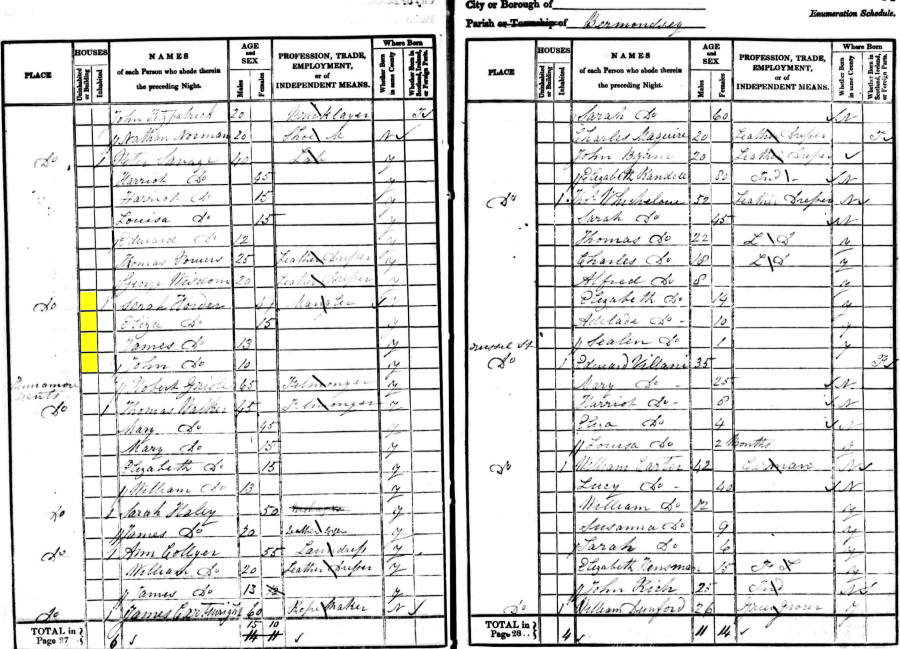 City or Borough of
Parish or Township of Bermondsey
Enumeration Schedule.
PLACE HOUSES Uninhabited or Building Inhabited NAMES of each Person who abode therein the preceding Night. AGE and SEX Males Females PROFESSION, TRADE, EMPLOYMENT, or of INDEPENDENT MEANS. Where Born Whether Born in same County Whether Born in Scotland, Ireland, or Foreign Parts.
John Fitzpatrick 20 Bricklayer
Nathan Norman 20 Shoe M N
Do 1 Peter Savage 40 Lab y
Harriot Do 45 y
Harriot Do 15 y
Louisa Do 15 y
Edward Do 12 y
Thomas Powers 25 Leather Dresser y
George Wisdom 20 Leather Dresser y
Do 1 Sarah 49 N
Eliza Do 15 y
James Do 13 y
John Do 10 y
Rents Robert 65 Felmonger y
Do 1 Thomas Walker 45 Felmonger y
Mary Do 45 y
Mary Do 15 y
Elizabeth Do 15 y
William Do 13 y
Do 1 Sarah Haley 50 y
James Do 20 y
Do 1 Ann Collyer 55 Laundress y
William Do 20 Leather Dresser y
James Do 13 y
Do 1 James Cartwright 60 Rope Maker N
15 10
TOTAL in Page 27 6
PLACE HOUSES Uninhabited or Building Inhabited NAMES of each Person who abode therein the preceding Night. AGE and SEX Males Females PROFESSION, TRADE, EMPLOYMENT, or of INDEPENDENT MEANS. Where Born Whether Born in same County Whether Born in Scotland, Ireland, or Foreign Parts.
Sarah Do 60 N
Charles Maguire 20 Leather Dresser
John 20 Leather Dresser
Elizabeth Randell 80 Ind N
Do 1 Whichelow 52 Leather Dresser N
Sarah Do 45 N
Thomas Do 22 L D y
Charles Do 18 L D y
Alfred Do 8 y
Elizabeth Do 14 y
Adelade Do 10 y
Do 1 y
Do 1 Edward Villani 35
Mary Do 25 N
Harriot Do 8 N
Eliza Do 4 N
Louisa Do 2 Months y
Do 1 William Carter 42 Carman N
Lucy Do 40 N
William Do 12 y
Susanna Do 9 y
Sarah Do 6 y
Elizabeth 15 y
John Rich 25 Ind N
Do 1 William Dunford 26 Green Grocer y
TOTAL in Page 28 4 11 14